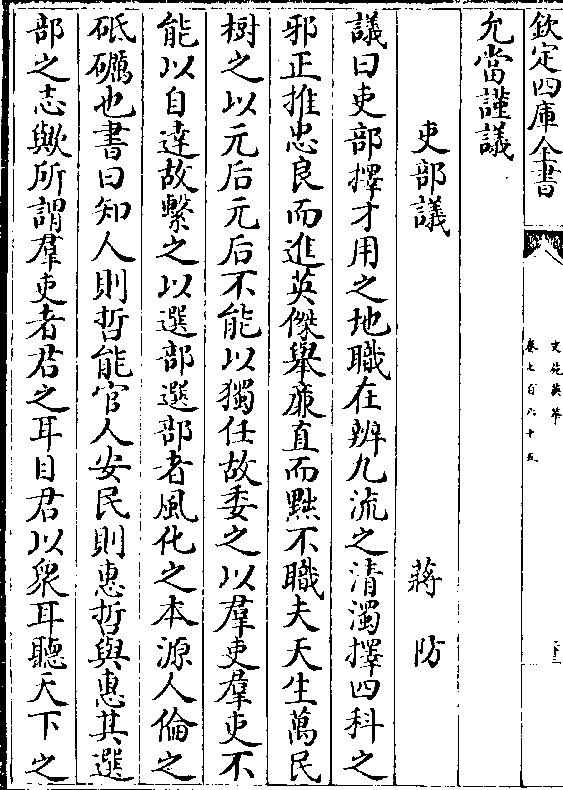 欽定四庫全書
文苑英華
卷七百六十五
允當謹議
吏部議
蔣防
議曰吏部擇才用之地職在辨九流之清濁擇四科之
邪正推忠良而進英傑舉廉直而黜不職夫天生萬民
樹之以元后元后不能以獨任故委之以羣吏羣吏不
能以自達故繫之以選部選部者風化之本源人倫之
砥礪也書曰知人則哲能官人安民則惠哲與惠其選
部之志歟所謂羣吏者君之耳目君以衆耳聽天下之